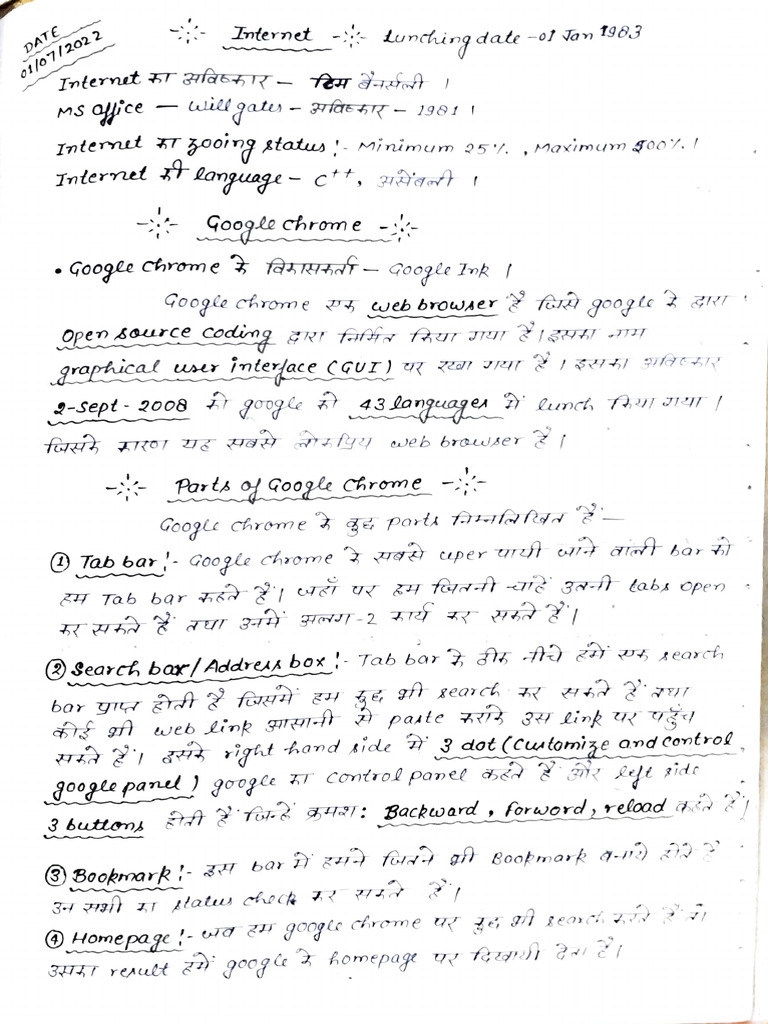 DATE
01/07/2022
Internet lunching date - 01 Jan 1983
Internet का अविष्कार – टिम बैनर्सली ।
MS office — Will gates – अविष्कार – 1981 ।
Internet का zooing status :- Minimum 25% , Maximum 500% ।
Internet की language – C++, असेंबली ।
Google Chrome
• Google Chrome के विकासकर्ता – Google Ink ।
Google chrome एक web browser है जिसे google के द्वारा
Open source coding द्वारा निर्मित किया गया है। इसका नाम
graphical user interface (GUI) पर रखा गया है । इसका अविष्कार
2-Sept-2008 को google को 43 languages में lunch किया गया ।
जिसके कारण यह सबसे लोकप्रिय web browser है ।
Parts of Google Chrome
Google chrome के कुछ parts निम्नलिखित हैं —
① Tab bar :- Google chrome के सबसे uper पायी जाने वाली bar को
हम Tab bar कहते हैं। जहाँ पर हम जितनी चाहें उतनी tabs open
कर सकते हैं तथा उनमें अलग-2 कार्य कर सकते हैं।
② Search bar/Address box :- Tab bar के ठीक नीचे हमें एक search
bar प्राप्त होती है जिसमें हम कुछ भी search कर सकते हैं तथा
कोई भी web link आसानी से paste कराके उस link पर पहुँच
सकते हैं। इसके right hand side में 3 dot (Customize and control
google panel) google का control panel कहते हैं और left side
3 buttons होती हैं जिन्हें क्रमश: Backward, forword, reload कहते हैं।
③ Bookmark :- इस bar में हमने जितने भी Bookmark बनाये होते हैं
उन सभी का status check कर सकते हैं।
④ Homepage :- जब हम google chrome पर कुछ भी search करते हैं तो
उसका result हमें google के homepage पर दिखायी देता है।